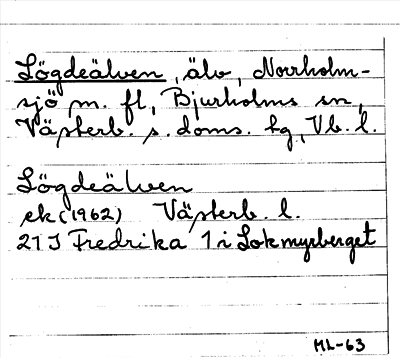 Lögdeälven, älv, Norrholm-
sjö m. fl., Bjurholms sn,
Västerb. s. doms. tg, Vb. l.
Lögdeälven
ek (1962) Västerb. l.
21 J Fredrika 1 i Lokmyrberget
ML-63